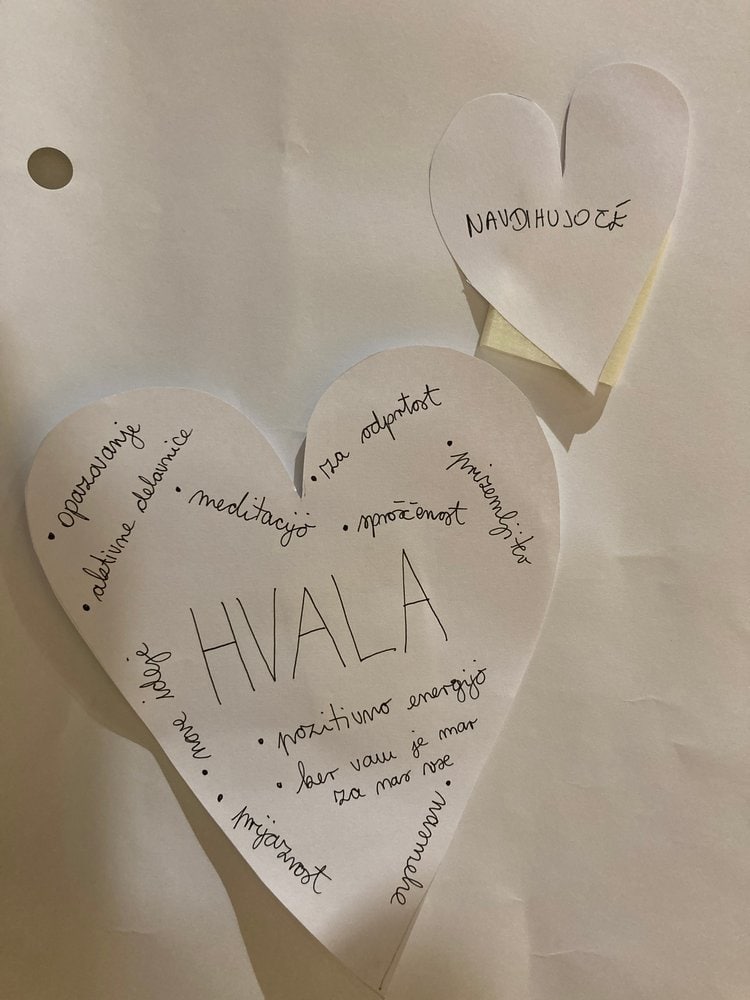 NAVDIHUJOČE
• za odprtost
• opazovanje
• aktivne delavnice
• meditacijo
• sproščenost
• prizemljitev
HVALA
• nove ideje
• pozitivno energijo
• ker vam je mar
za nas vse
• prijaznost
• nasmehe